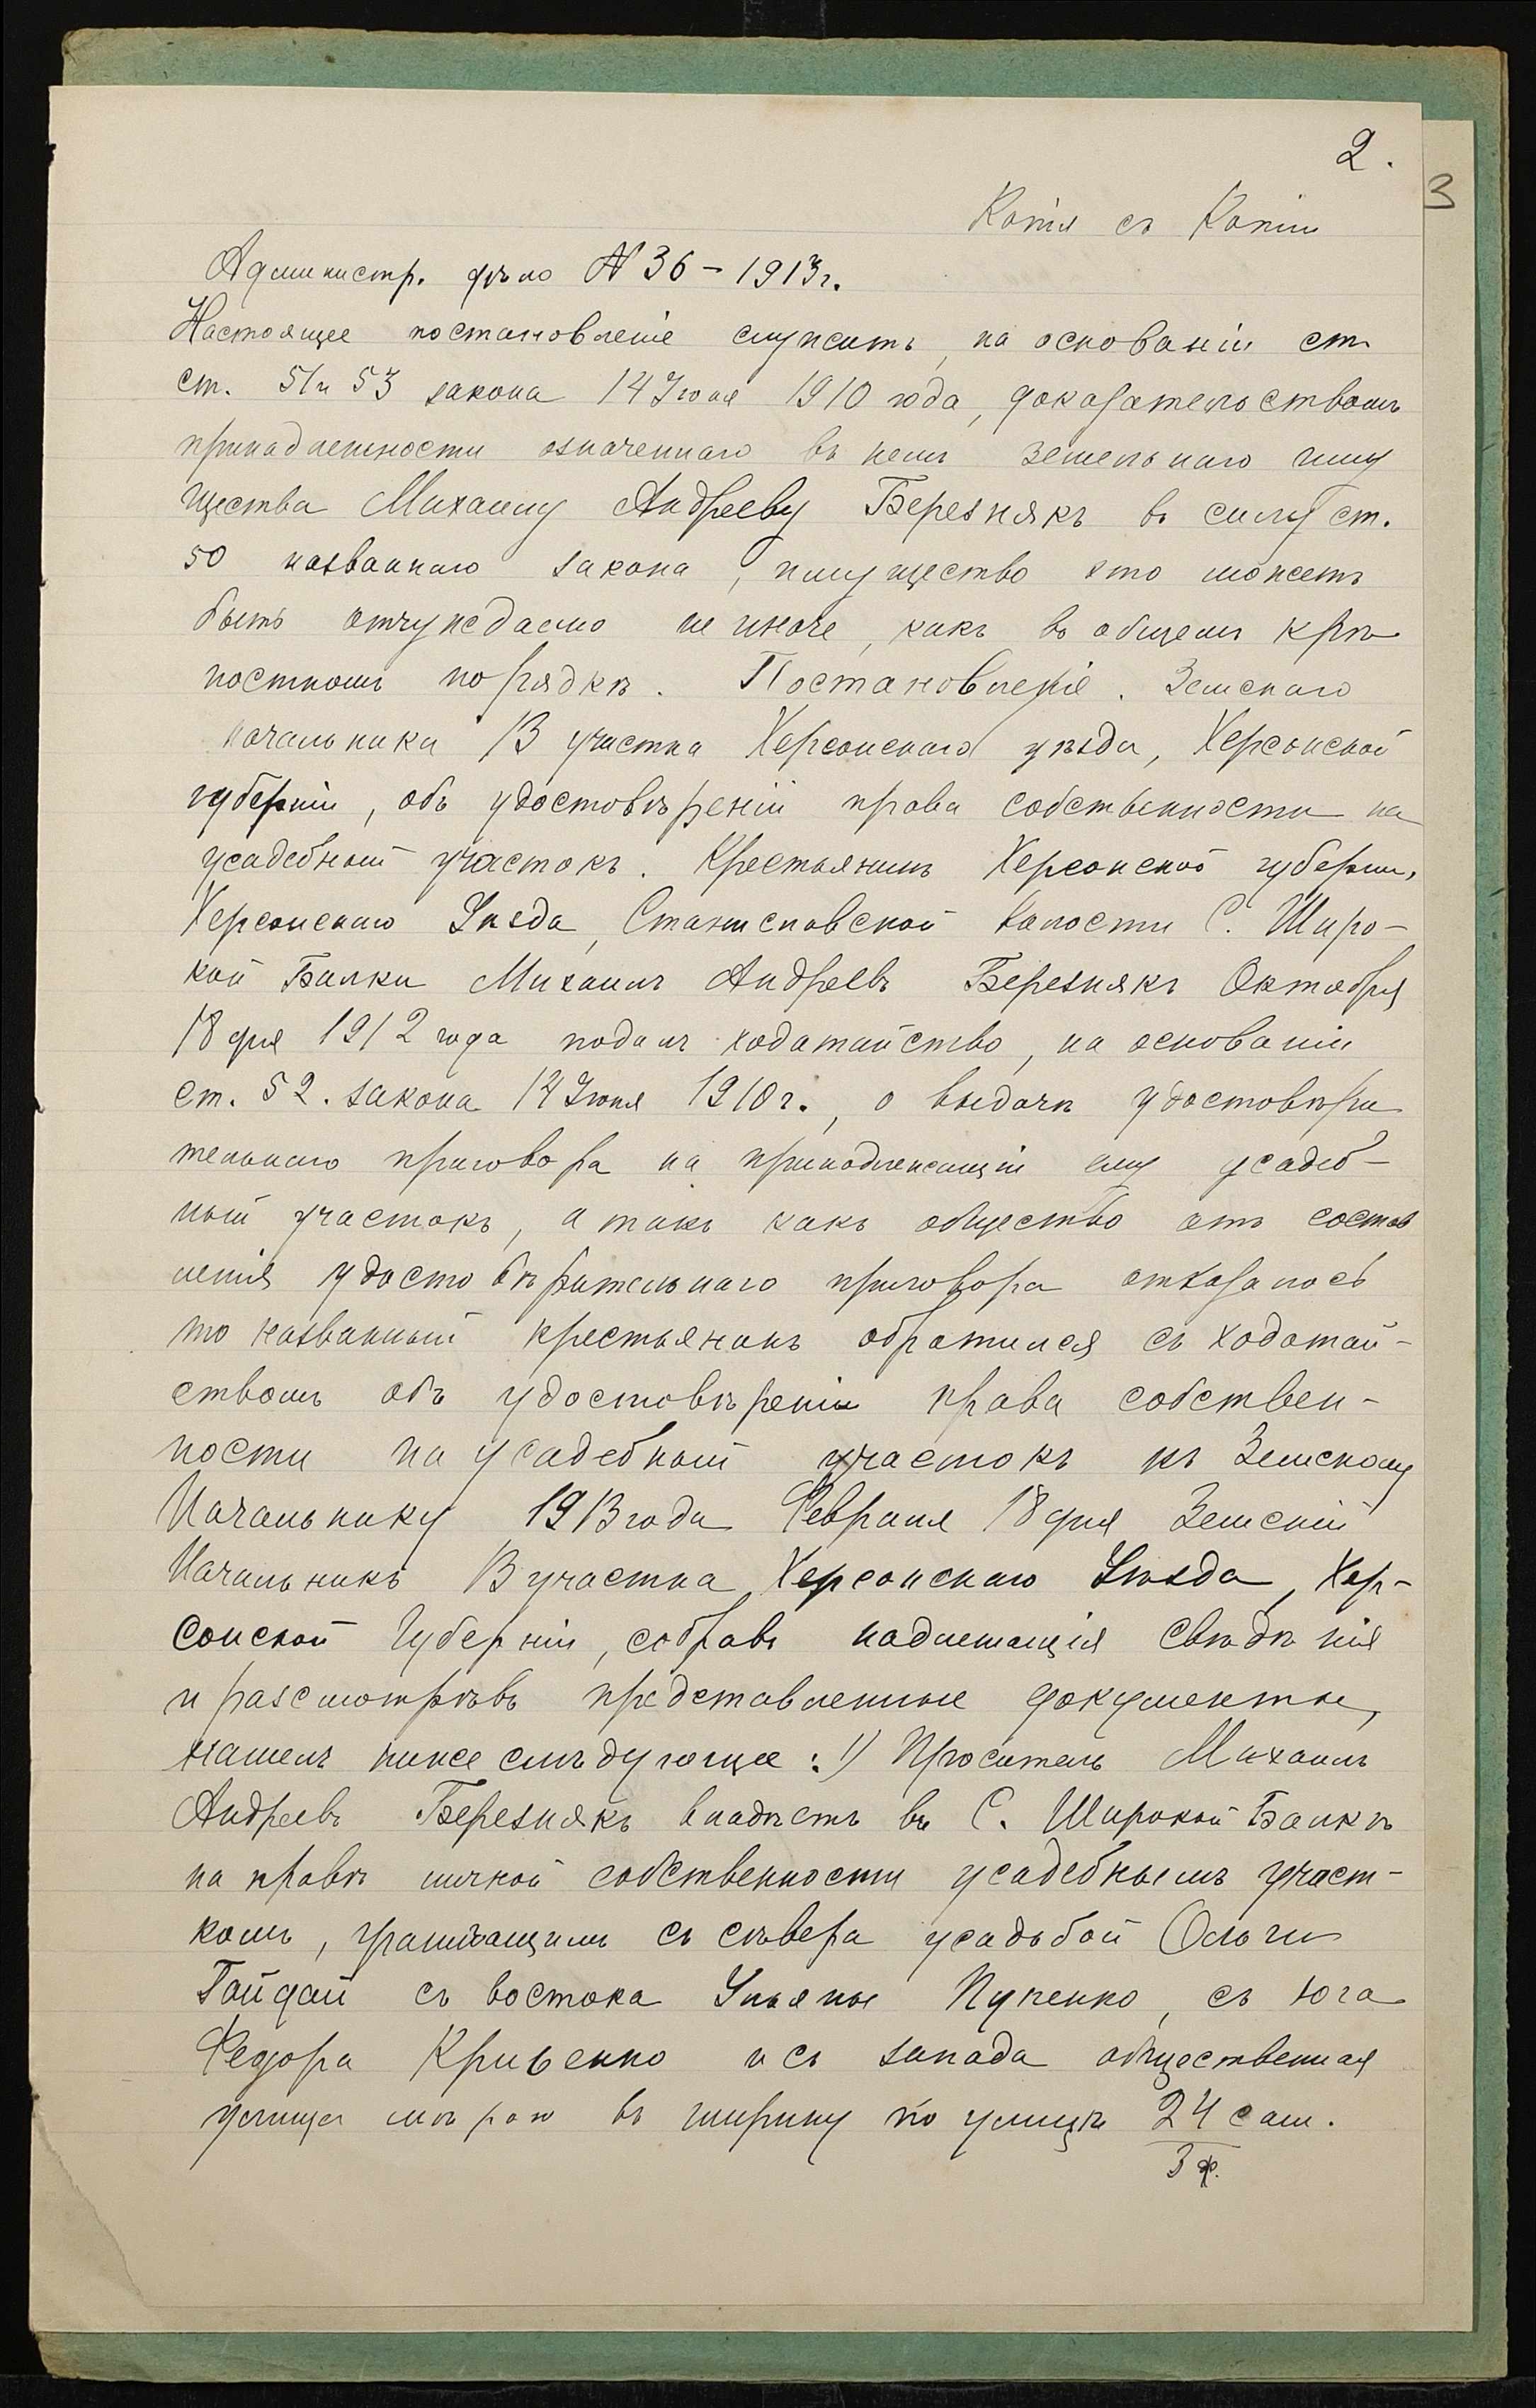 2.
3
Копія съ Копіи
Администр. дѣло № 36 – 1913 г.
Настоящее постановленіе служитъ, на основаніи ст.
ст. 51 и 53 закона 14 Іюня 1910 года, доказательствомъ
принадлежности означеннаго въ немъ земельнаго иму
щества Михаилу Андрееву Березнякъ въ силу ст.
50 названнаго закона, имущество это можетъ
быть отчуждаемо не иначе, какъ въ общемъ крѣ
постномъ порядкѣ. Постановленіе. Земскаго
начальника 13 участка Херсонскаго уѣзда, Херсонской
губерніи, объ удостовѣреніи права собственности на
усадебный участокъ. Крестьянинъ Херсонской губерніи,
Херсонскаго Уѣзда, Станиславской волости С. Широ–
кой Балки Михаилъ Андреевъ Березнякъ Октября
18 дня 1912 года подалъ ходатайство, на основаніи
ст. 52. закона 14 Іюня 1910 г., о выдачѣ удостовѣри
тельнаго приговора на принадлежащій ему усадеб–
ный участокъ, а такъ какъ общество отъ состав
ленія удостовѣрительнаго приговора отказалось
то названный крестьянинъ обратился съ ходатай–
ствомъ объ удостовѣреніи права собствен–
ности на усадебный участокъ къ Земскому
Начальнику 1913 года Февраля 18 дня Земскій
Начальникъ 13 участка Херсонскаго Уѣзда, Хер–
сонской Губерніи, собравъ надлежащія свѣдѣнія
и разсмотрѣвъ представленные документы,
нашелъ ниже слѣдующее: 1) Проситель Михаилъ
Андреевъ Березнякъ владѣетъ въ С. Широкой Балкѣ
на правѣ личной собственности усадебнымъ участ–
комъ, граничащимъ съ сѣвера усадьбой Ольги
Гайдай съ востока Ульяны Пупенко, съ юга
Федора Кривенко и съ запада общественная
улица мѣрою въ ширину по улицѣ 24 саж.
3 ф.